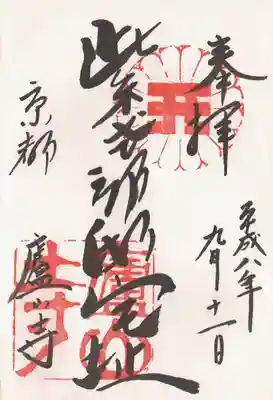 奉拝
平成八年
九月十一日
紫式部邸宅址
京都
廬山寺